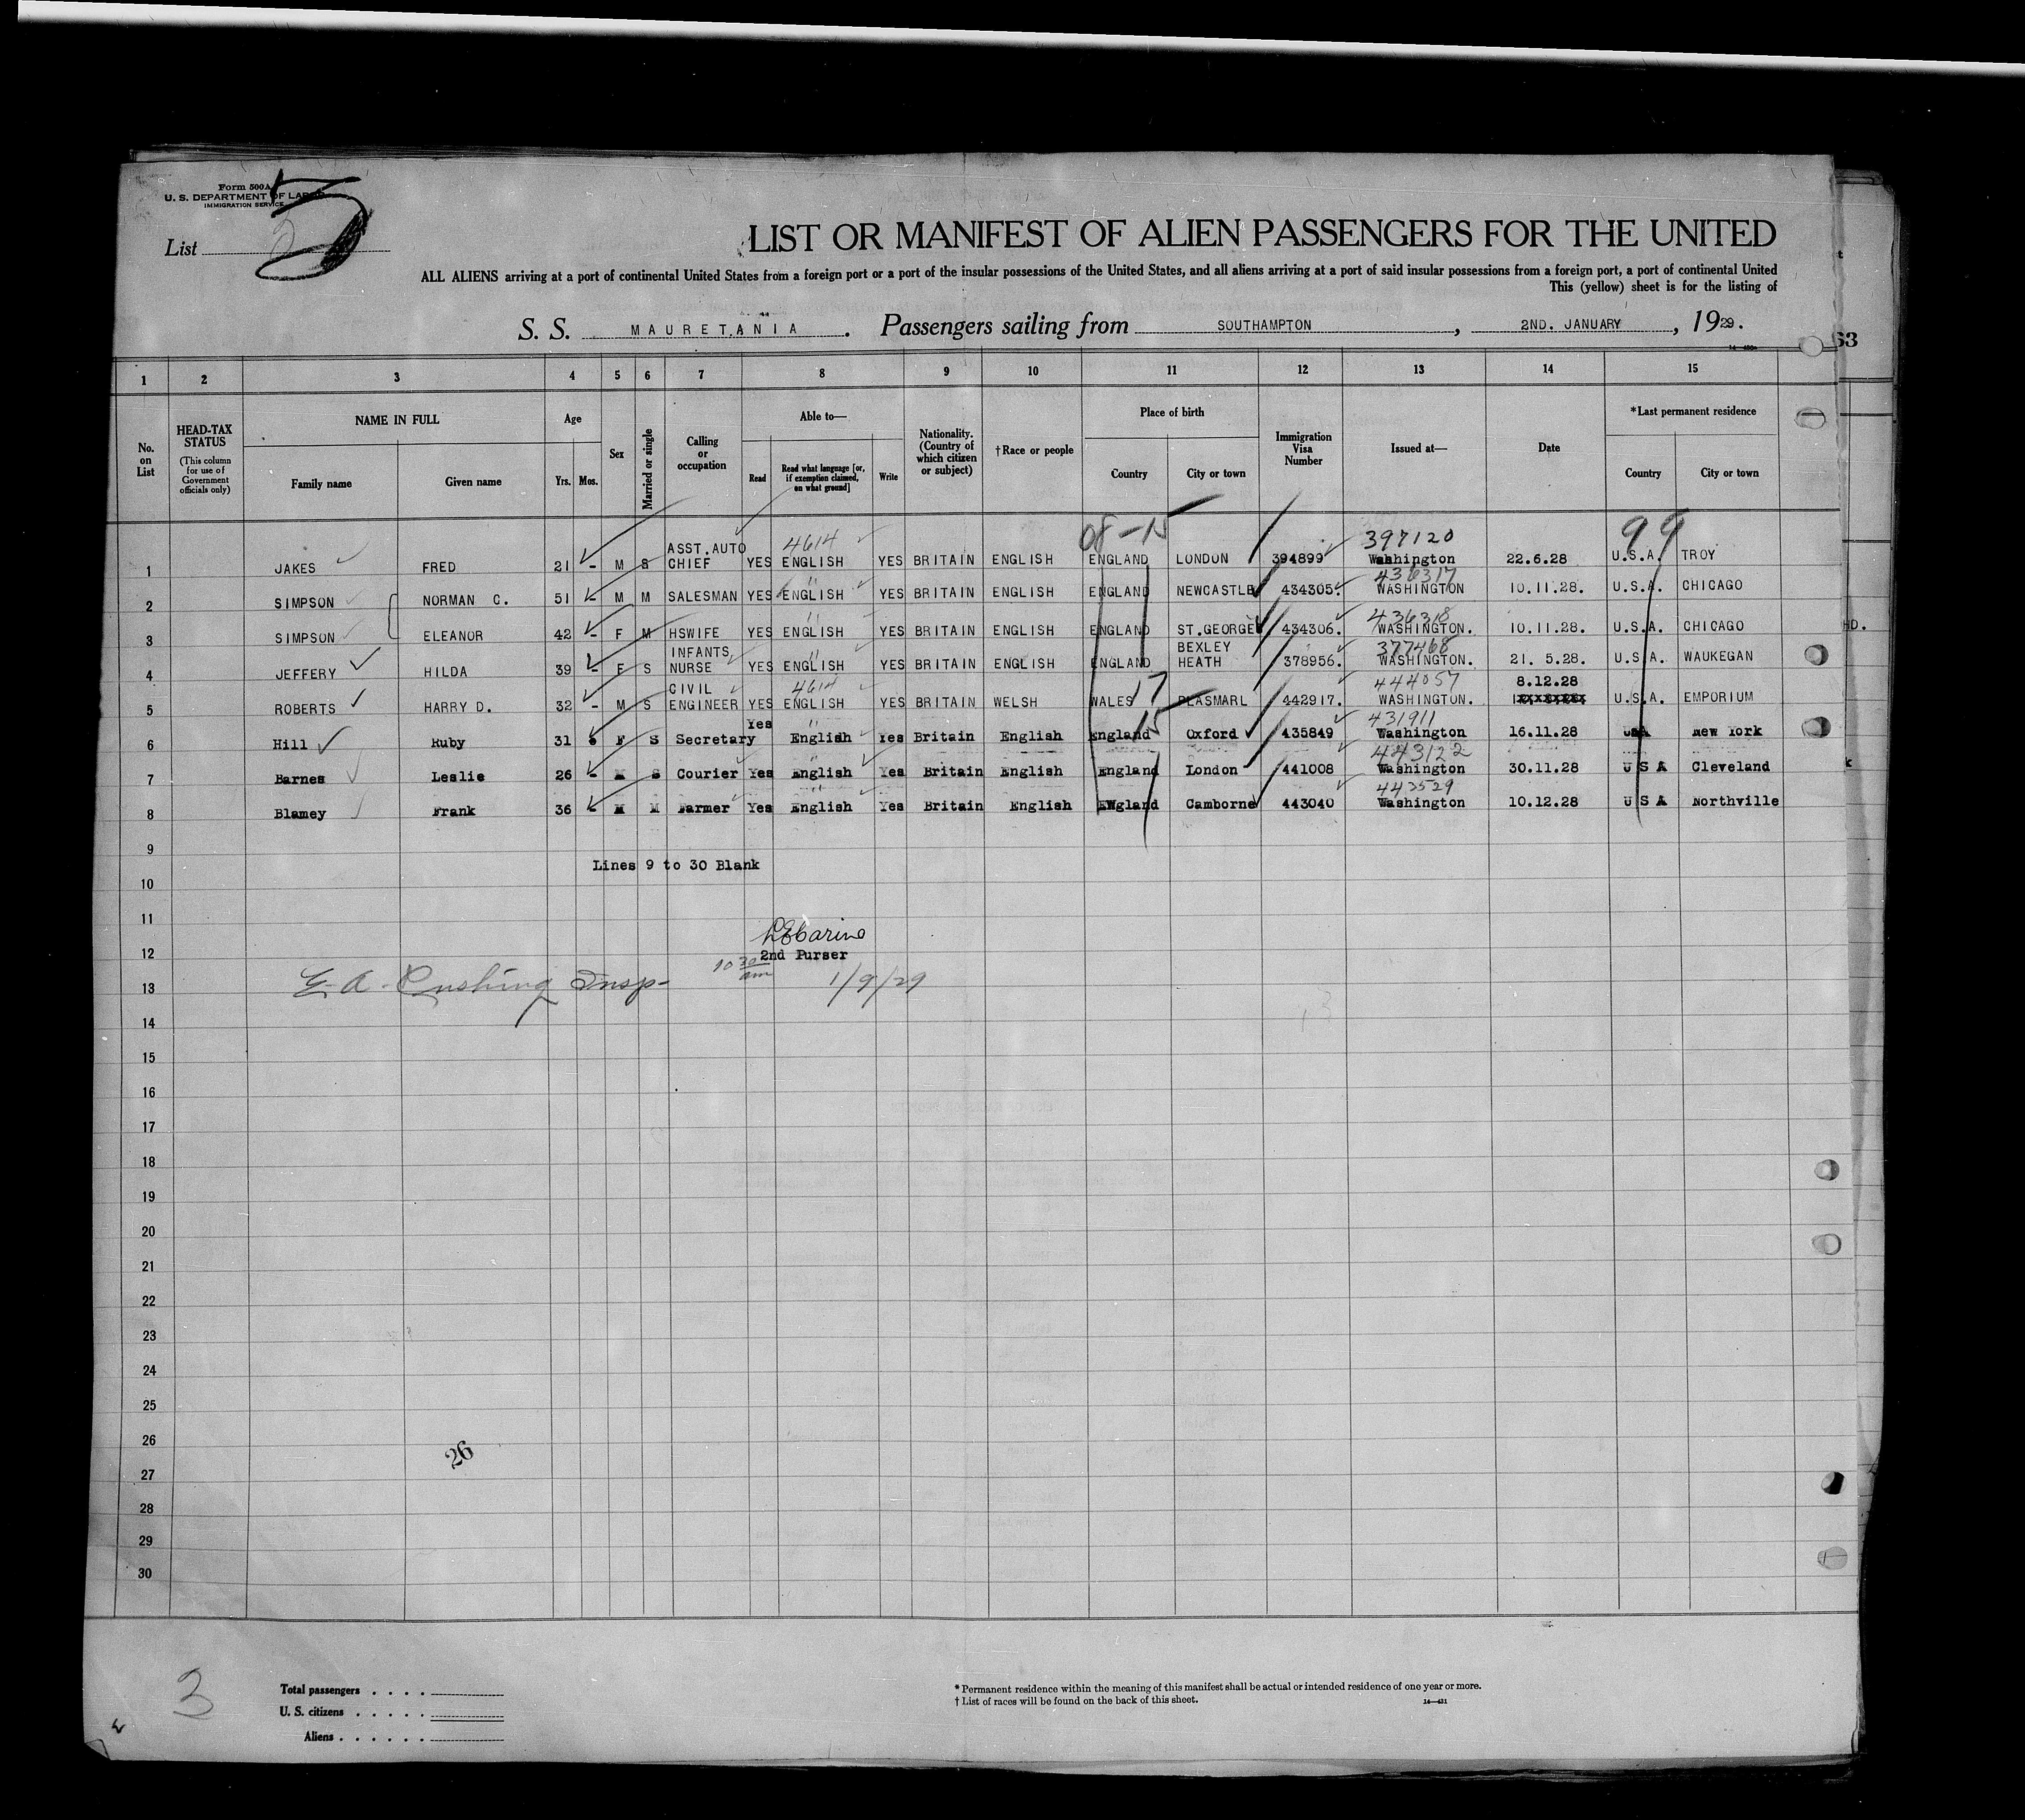 Form 500A
U. S. DEPARTMENT OF LABOR
IMMIGRATION SERVICE
List 3
LIST OR MANIFEST OF ALIEN PASSENGERS FOR THE UNITED
ALL ALIENS arriving at a port of continental United States from a foreign port or a port of the insular possessions of the United States, and all aliens arriving at a port of said insular possessions from a foreign port, a port of continental United
This (yellow) sheet is for the listing of
S. S. MAURETANIA. Passengers sailing from SOUTHAMPTON, 2ND. JANUARY, 1929.
63
1 2 3 4 5 6 7 8 9 10 11 12 13 14 15
No. on List
HEAD-TAX STATUS (This column for use of Government officials only)
NAME IN FULL
Family name Given name
Age
Yrs. Mos.
Sex
Married or single
Calling or occupation
Able to—
Read Read what language [or, if exemption claimed, on what ground] Write
Nationality. (Country of which citizen or subject)
†Race or people
Place of birth
Country City or town
Immigration Visa Number
Issued at—
Date
*Last permanent residence
Country City or town
08-15 99
4614 397120
1 JAKES FRED 21 - M S ASST.AUTO CHIEF YES ENGLISH YES BRITAIN ENGLISH ENGLAND LONDON 394899 Washington 22.6.28 U.S.A. TROY
" 436317
2 SIMPSON NORMAN C. 51 - M M SALESMAN YES ENGLISH YES BRITAIN ENGLISH ENGLAND NEWCASTLE 434305. WASHINGTON 10.11.28. U.S.A. CHICAGO
" 436318
3 SIMPSON ELEANOR 42 - F M HSWIFE YES ENGLISH YES BRITAIN ENGLISH ENGLAND ST.GEORGE 434306. WASHINGTON. 10.11.28. U.S.A. CHICAGO
" 377468
4 JEFFERY HILDA 39 - F S INFANTS NURSE YES ENGLISH YES BRITAIN ENGLISH ENGLAND BEXLEY HEATH 378956. WASHINGTON. 21. 5.28. U.S.A. WAUKEGAN
4614 17 444057
5 ROBERTS HARRY D. 32 - M S CIVIL ENGINEER YES ENGLISH YES BRITAIN WELSH WALES PLASMARL 442917. WASHINGTON. 8.12.28 U.S.A. EMPORIUM
" 15 431911
6 Hill Ruby 31 F S Secretary Yes English Yes Britain English England Oxford 435849 Washington 16.11.28 USA New York
" 443122
7 Barnes Leslie 26 - M S Courier Yes English Yes Britain English England London 441008 Washington 30.11.28 U S A Cleveland
" 443529
8 Blamey Frank 36 - M M Farmer Yes English Yes Britain English England Camborne 443040 Washington 10.12.28 U S A Northville
9
Lines 9 to 30 Blank
10
11
12 2nd Purser
10 30 am
13 E. A. Cushing Insp- 1/9/29
14
15
16
17
18
19
20
21
22
23
24
25
26
26
27
28
29
30
3
Total passengers
U. S. citizens
Aliens
* Permanent residence within the meaning of this manifest shall be actual or intended residence of one year or more.
† List of races will be found on the back of this sheet.
14—431